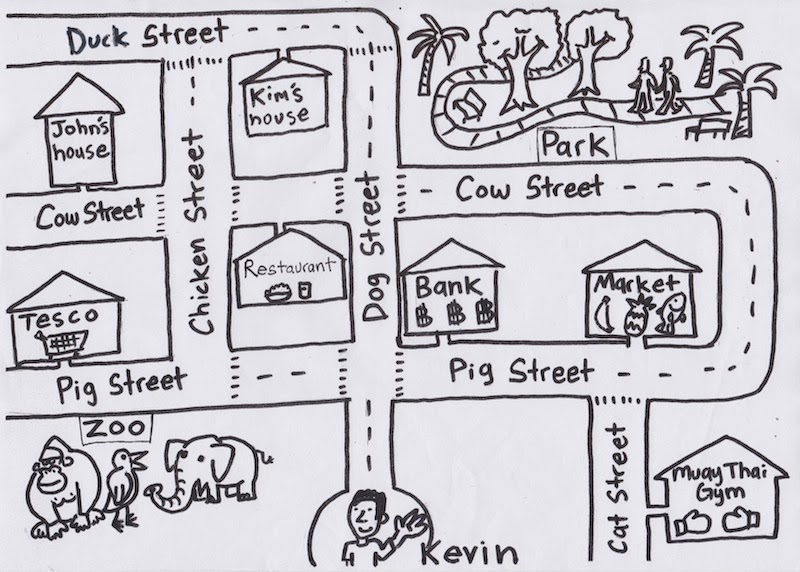 Duck Street
John's
house
Kim's
house
Park
Cow Street
Cow Street
Chicken Street
Dog Street
Restaurant
Bank
Market
Tesco
Pig Street
Pig Street
ZOO
Cat Street
Muay Thai
Gym
Kevin